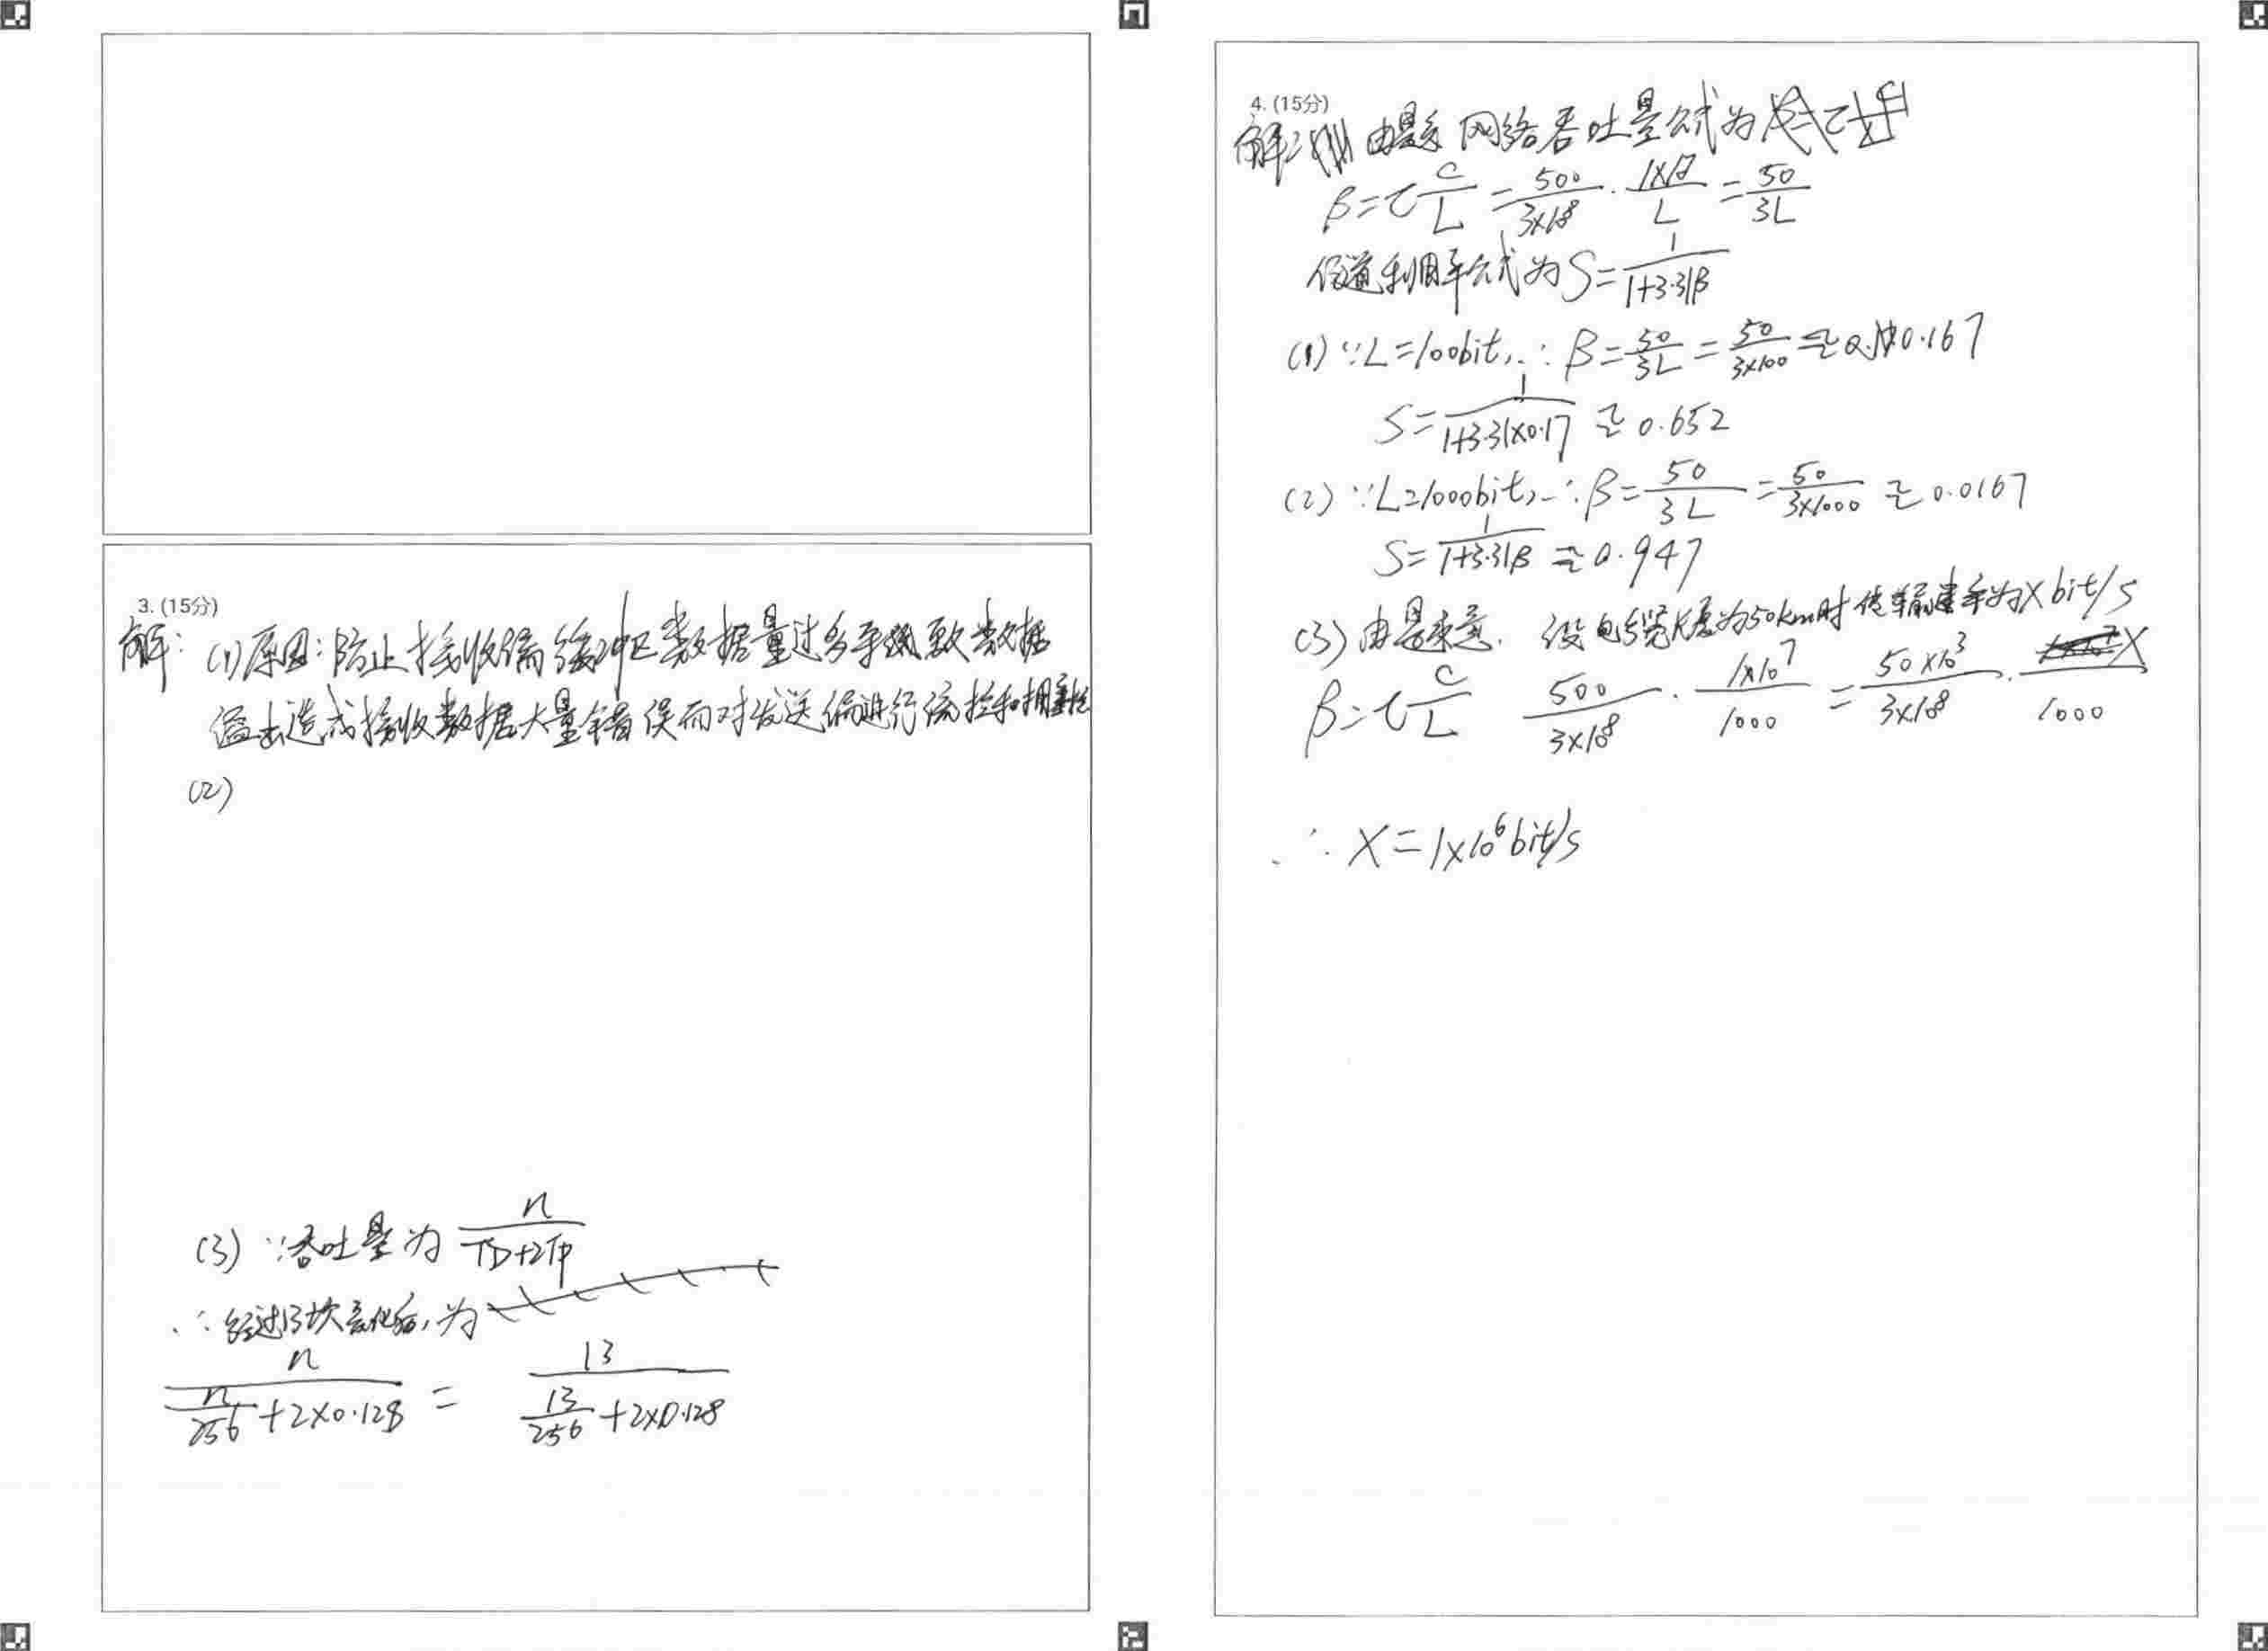 3. (15分)
解: (1)原因:防止接收端缓冲区数据量过多导致数据
溢出造成接收数据大量错误而对发送端进行流控和拥塞控
(2)
(3) ∵吞吐量为 n/(TD+2TP)
∴经过13次变化后,为
n/(n/256+2×0.128) = 13/(13/256+2×0.128)
4. (15分)
解: 由题 网络吞吐量公式为
β=τ C/L = 500/(3×10⁸) · 1×10⁷/L = 50/3L
信道利用率公式为 S=1/(1+3.31β)
(1) ∵L=100bit, ∴ β=50/3L=50/(3×100)≈0.167
S=1/(1+3.31×0.17)≈0.652
(2) ∵L=1000bit, ∴β=50/3L=50/(3×1000)≈0.0167
S=1/(1+3.31β)≈0.947
(3) 由题意. 设电缆长度为50km时传输速率为X bit/s
β=τ C/L 500/(3×10⁸) · 1×10⁷/1000 = 50×10³/(3×10⁸) · X/1000
∴ X=1×10⁶bit/s